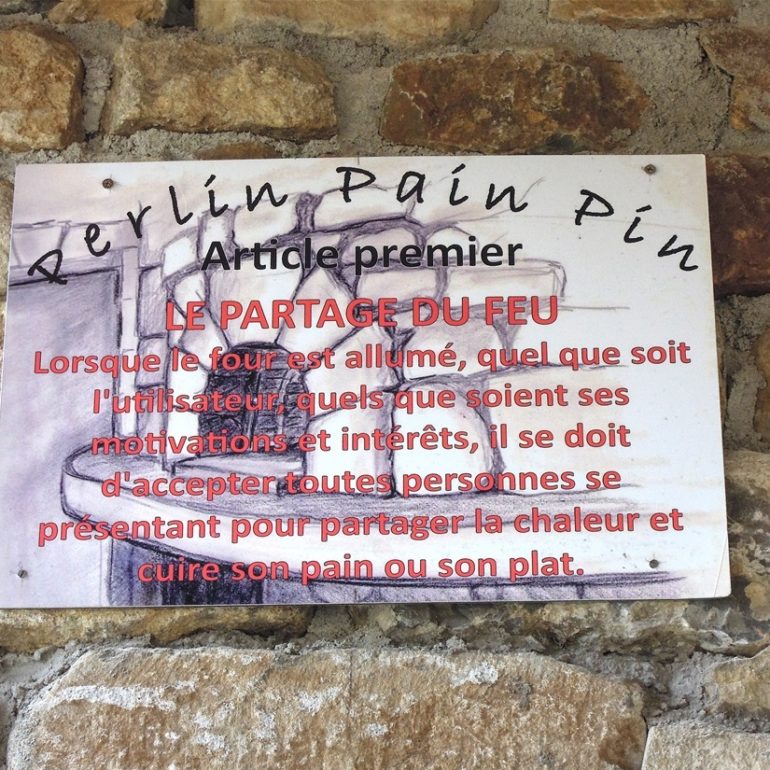 Perlin Pain Pin
Article premier
LE PARTAGE DU FEU
Lorsque le four est allumé, quel que soit
l'utilisateur, quels que soient ses
motivations et intérêts, il se doit
d'accepter toutes personnes se
présentant pour partager la chaleur et
cuire son pain ou son plat.